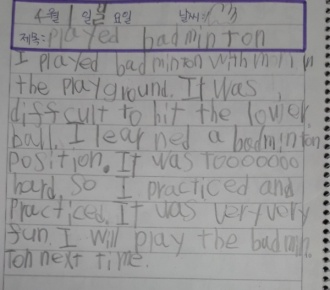 4월 1일 월요일 날씨:
제목: played badminton
I played badminton with mom in
the playground. It was
difficult to hit the lower
ball. I learned a badminton
position. It was tooooooo
hard. so I practiced and
practiced. It was very very
fun. I will play the badmin
ton next time.